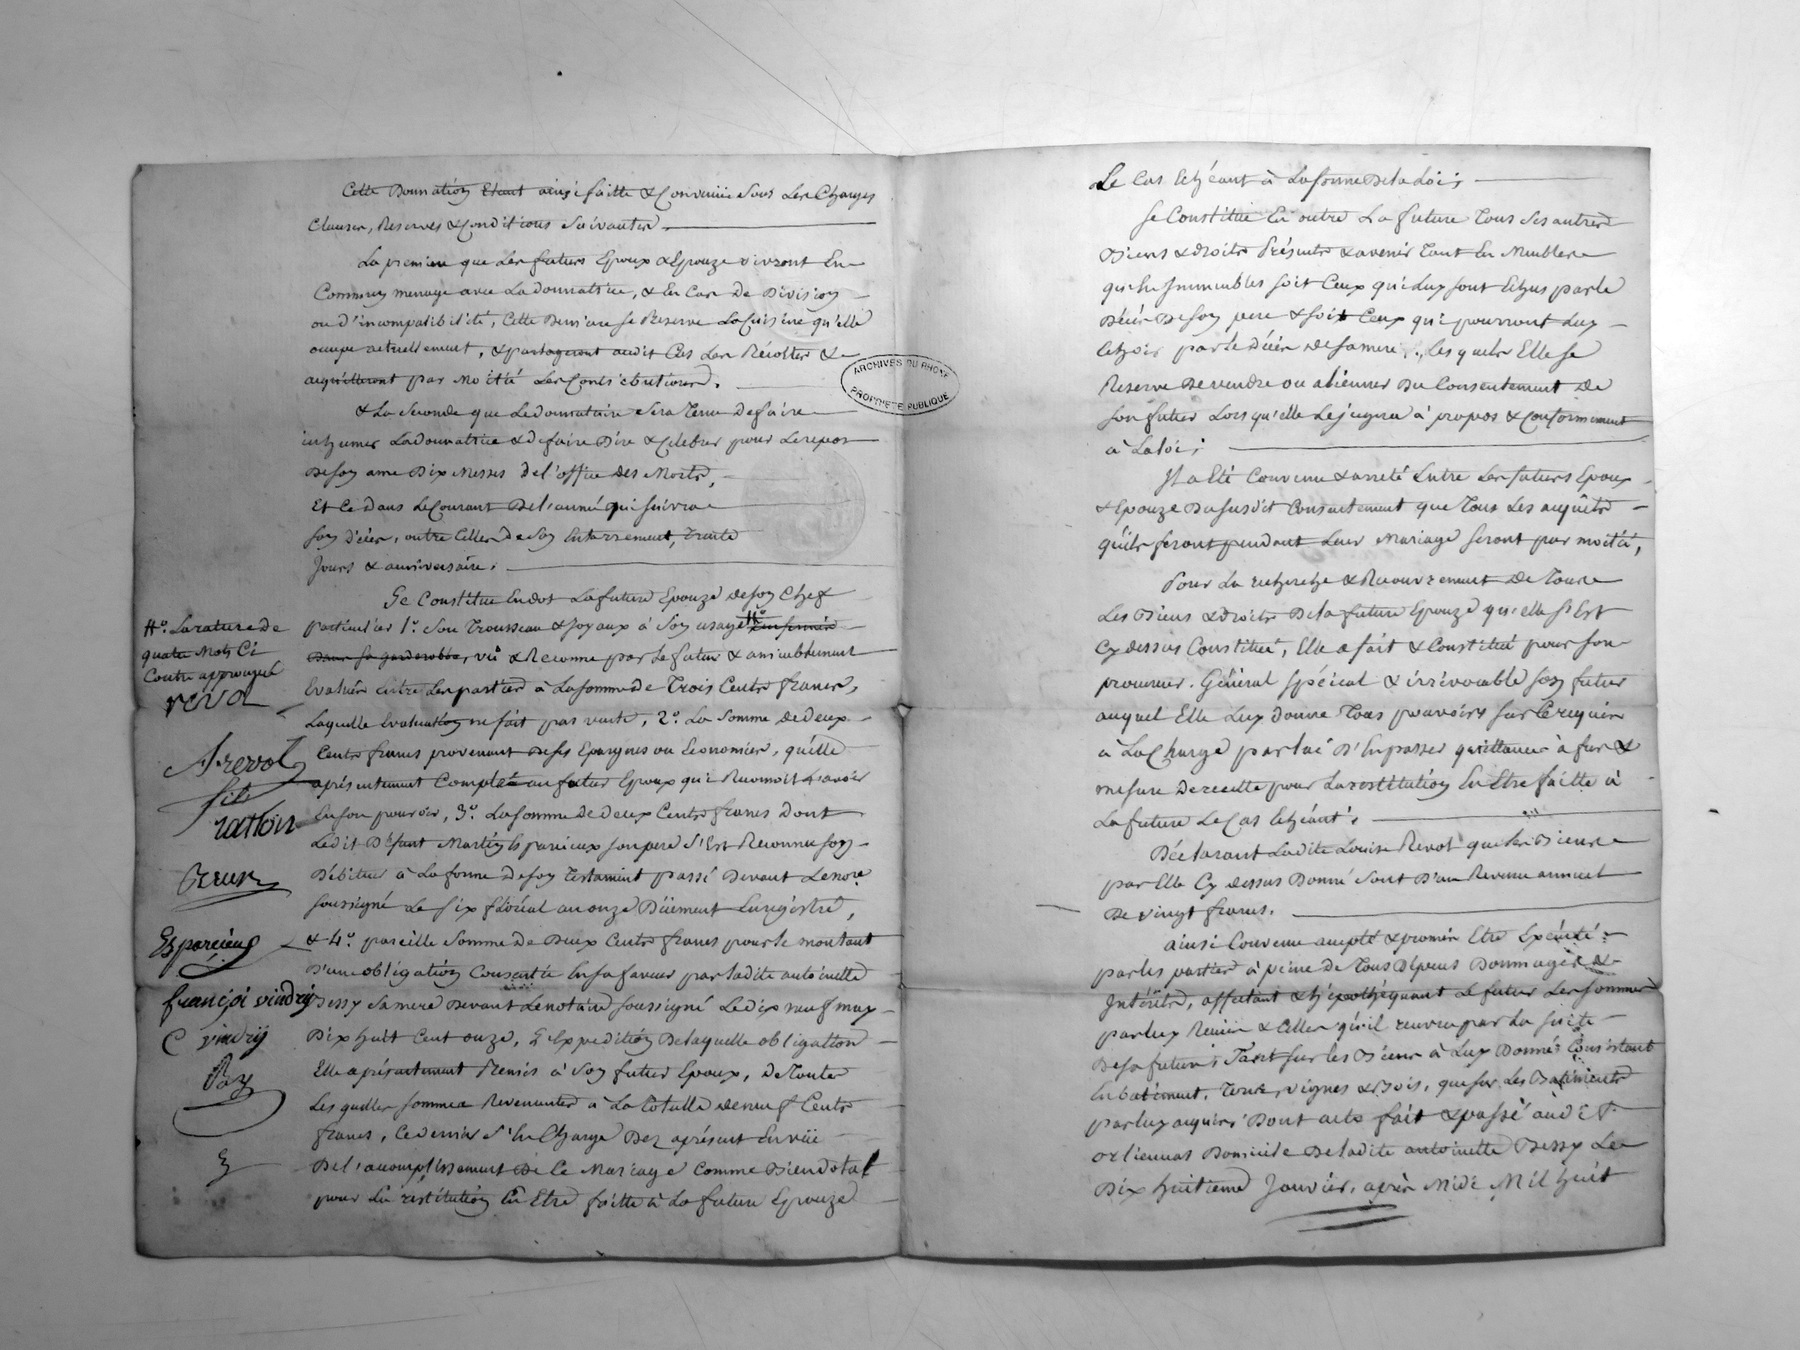 Cette Donnation Etant ainsi faitte & Convenüe Sous Les Charges
Clauses, Reserves & Conditions Suivantes.
La premiere que Les futurs Epoux & Epouze vivront En
Commun menage avec La donnatrice, & En Cas de Division
ou d'incompatibilité, Cette Derniere se Reserve La Cuisine qu'elle
occupe actuellement, & partageront audit Cas Les Récoltes &
acquitteront par Moitié Les Contributions.
& La Seconde que Le donnataire Sera Tenu de faire
inhumer La donnatrice & de faire Dire & Celebrer pour Le repos
De son ame Dix Messes de l'office Des Morts,
Et Ce dans Le Courant De l'année qui suivra
son décès, outre Celles de Son Enterrement, Trente
Jours & anniversaire.
Se Constitue En dot La future Epouze de son Chef
particulier 1º. Son Trousseau & Joyaux à Son usage
Dans sa garderobbe, vû & Reconnu par Le futur & amiablement
Evalués Entre Les parties à La somme de Trois Cents francs,
Laquelle Evaluation ne fait pas vente, 2º. La Somme de Deux
Cents francs provenant De ses Epargnes ou Economies, qu'elle
a présentement Comptée au futur Epoux qui Reconnoit L'avoir
En son pouvoir, 3º. La somme de Deux Cents francs Dont
Ledit Défunt Martin Esparcieux son pere s'Est Reconnu son
Débiteur à La forme de son Testament passé Devant Le nore.
soussigné Le six floréal an onze Düement Enregistré,
& 4º. pareille Somme de Deux Cents francs pour le montant
D'une obligation Consentie En sa faveur par ladite antoinette
Dessy Sa mere Devant Le notaire soussigné Le dix neuf may
Dix huit Cent onze, Expedition De laquelle obligation
Elle a présentement Remis à Son futur Epoux, de Toutes
Les quelles sommes Revenantes à La totalle de neuf Cents
francs, Ce dernier s'En Charge Dez aprésent En vüe
De l'accomplissement de Ce Mariage Comme Bien dotal
pour La restitution En Etre faitte à La future Epouze
#º. La rature de
quatre Mots Ci
Contre approuvée
revol
revol
fils
ration
Esparcieux
françoi vindry
C vindry
Pay
ARCHIVES DU RHONE
PROPRIETE PUBLIQUE
Le Cas Echéant à La forme De la Loi;
Se Constitue En outre La future Tous Ses autres
Biens & droits Présents & avenir Tant En Meubles
qu'En Immeubles soit Ceux qui Luy sont Echus par le
Décès De son pere & soit Ceux qui pourront Luy
Echoir par le Décès de sa mere, Les quels Elle se
Reserve De vendre ou aliener Du Consentement De
son futur Lors qu'elle Le jugera à propos & Conformement
à La loi;
Il a Eté Convenu & arreté Entre Les futurs Epoux
& Epouze Du susdit Consentement que Tous Les acquêts
qu'ils feront pendant Leur Mariage seront par moitié,
Pour La recherche & Recouvrement De Tous
Les Biens & droits De la future Epouze qu'elle s'Est
Cy dessus Constitué, Elle a fait & Constitué pour son
procureur Général Spécial & irrévocable son futur
auquel Elle Luy donne Tous pouvoirs sur Ce requis
à La Charge par lui D'En passer quittance à fur &
mesure De recette pour La restitution En Etre faitte à
La future Le Cas Echéant;
Déclarant Ladite Louise Revol que Les Biens
par Elle Cy dessus Donné Sont D'un Revenu annuel
De vingt francs.
ainsi Convenu accepté & promis Etre Exécuté
par les parties à peine de Tous Dépens Dommages &
Intérêts, affectant & hÿpothéquant Le futur Les sommes
par luy Reçües & Celles qu'il recevra par La suite
De sa future, Tant sur les Biens à Luy Donnés Consistant
En batiment, Terres, vignes & Bois, que sur Les Batiments
par luy acquis; Dont acte fait & passé audit St.
orliennas Domicile De ladite antoinette Dessy Le
Dix huitieme Janvier, après Midi Mil huit